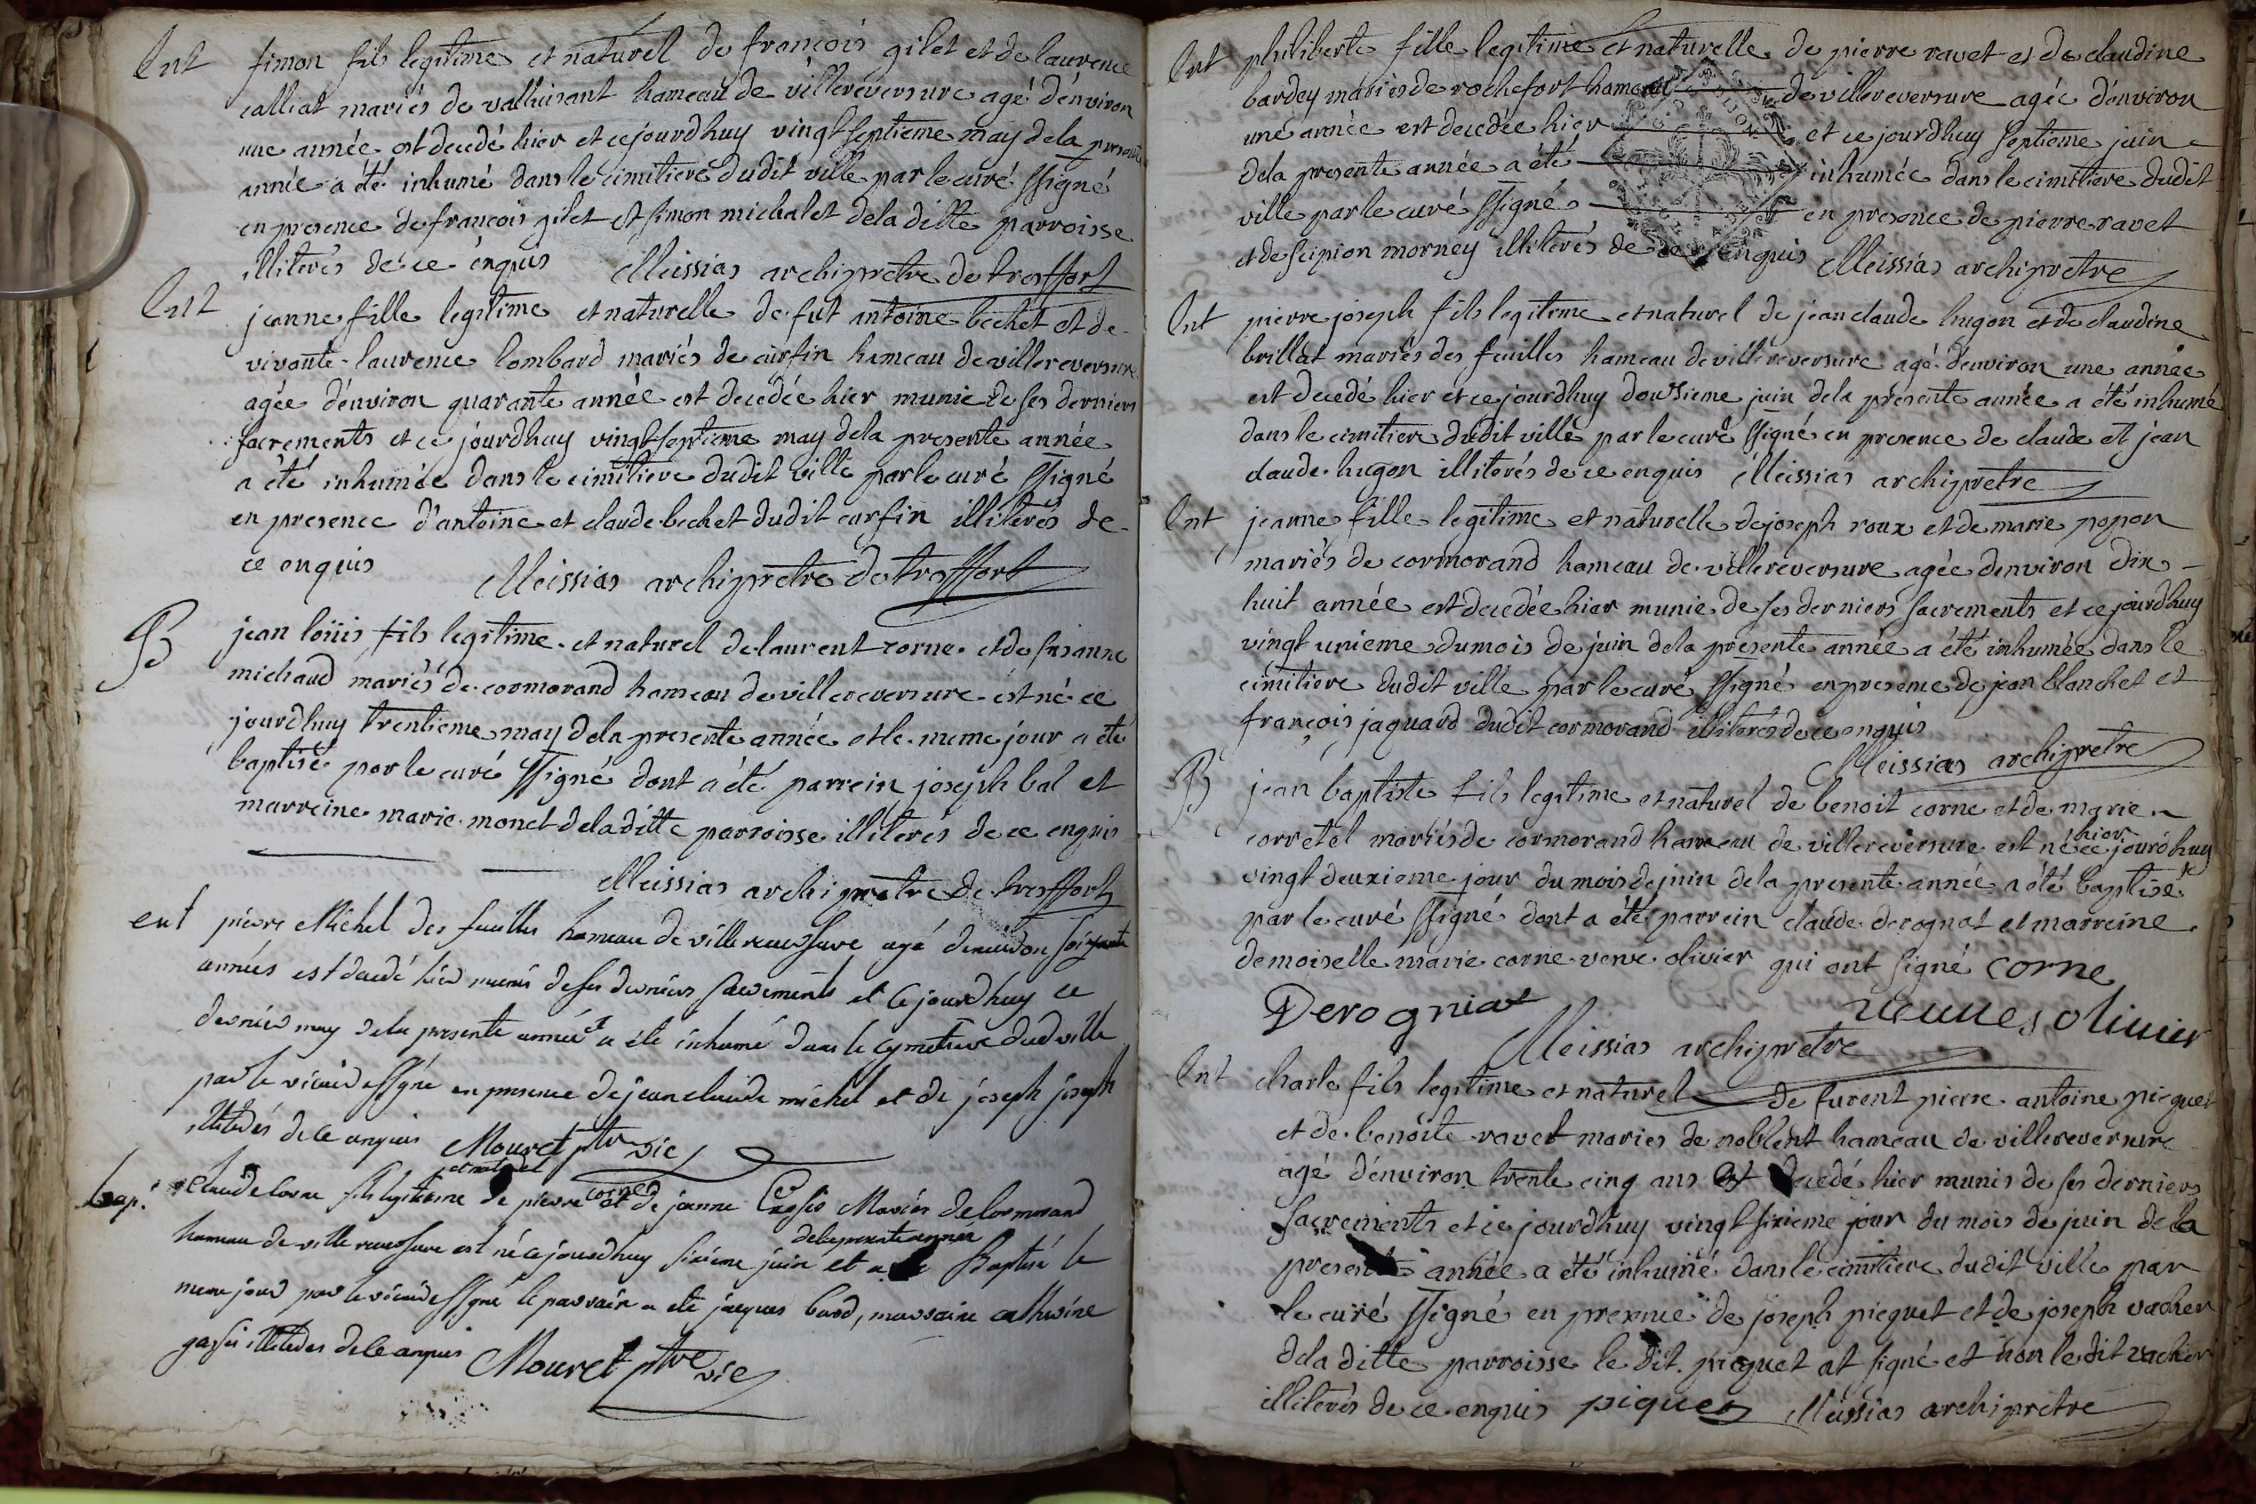 Ent simon fils legitime et naturel de françois gilet et de laurence
calliat mariés de valluisant hameau de villereversure agé d'environ
une année est decedé hier et cejourdhuy vingt septieme may dela presente
année a été inhumé dans le cimitiere dudit ville par le curé ssigné
en presence de françois gilet et simon michalet dela ditte parroisse
illiterés de ce enquis Meissias archipretre de treffort
Ent jeanne fille legitime et naturelle de fut antoine bechet et de
vivante laurence lombard mariés de curfin hameau de villereversure
agée d'environ quarante année est decedée hier munie de ses derniers
sacrements et ce jourdhuy vingt septieme may dela presente année
a été inhumée dans le cimitiere dudit ville par le curé ssigné
en presence d'antoine et claude bechet dudit curfin illiterés de
ce enquis Meissias archipretre de treffort
B jean loüis fils legitime et naturel de laurent corne et de susanne
michaud mariés de cormorand hameau de villereversure est né ce
jourdhuy trentieme may dela presente année et le meme jour a été
baptisé par le curé ssigné dont a été parrein joseph bal et
marreine marie monet dela ditte parroisse illiterés de ce enquis
Meissias archipretre de treffort
ent pierre Michel des feuilles hameau de villereversure agé denviron soixante
années est decedé hier munis de ses derniers sacrements et cejourdhuy ce
dernier may dela presente année a été inhumé dans le cymetiere dud ville
par le vicaire ssigné en presence de jean claude michel et de joseph joseph
illiterés de ce enquis Mouret ptre vic
et naturel
bap. claude corne fils legitime de pierre corne et de jeanne mariés de Cormorand
dela presente année
hameau de villereversure est né cejourdhuy sixieme juin et a été Baptisé le
meme jour par le vicaire ssigné le parrain a été jacques band, marraine catherine
illiterés de ce enquis Mouret ptre vic
Ent philiberte fille legitime et naturelle de pierre ravet et de claudine
bardey mariés de rochefort hameau de villereversure agée d'environ
une année est decedée hier et ce jourdhuy septieme juin
dela presente année a été inhumée dans le cimitiere dudit
ville par le curé ssigné en presence de pierre ravet
et de scipion morney illiterés de ce enquis Meissias archipretre
Ent pierre joseph fils legitime et naturel de jean claude hugon et de claudine
brillat mariés des feuilles hameau de villereversure agé d'environ une année
est decedé hier et ce jourdhuy dousieme juin dela présente année a été inhumé
dans le cimitiere dudit ville par le curé ssigné en presence de claude et jean
claude hugon illiterés de ce enquis Meissias archipretre
Ent jeanne fille legitime et naturelle de joseph roux et de marie popon
mariés de cormorand hameau de villereversure agée denviron dix
huit année est decedée hier munie de ses derniers sacrements et ce jourdhuy
vingt unieme du mois de juin dela presente année a été inhumée dans le
cimitiere dudit ville par le curé ssigné en presence de jean blanchet et
françois jaquard dudit cormorand illiterés de ce enquis
Meissias archipretre
B jean baptiste fils legitime et naturel de benoit corne et de marie
hier
corretel mariés de cormorand hameau de villereversure est né et ce jourdhuy
vingt deuxieme jour du mois de juin dela presente année a été baptisé
par le curé ssigné dont a été parrein claude derognat et marreine
demoiselle marie corne veuve olivier qui ont signé corne
Derogniat veuve olivier
Meissias archipretre
Ent charle fils legitime et naturel de furent pierre antoine picquet
et de benoite ravet mariés de noblent hameau de villereversure
agé d'environ trente cinq ans est decedé hier munis de ses derniers
sacrements et ce jourdhuy vingt sixieme jour du mois de juin de la
presente année a été inhumé dans le cimitiere dudit ville par
le curé ssigné en presence de joseph picquet et de joseph vacher
dela ditte parroisse le dit picquet at signé et non le dit vacher
illiterés de ce enquis piquet Meissias archiprêtre